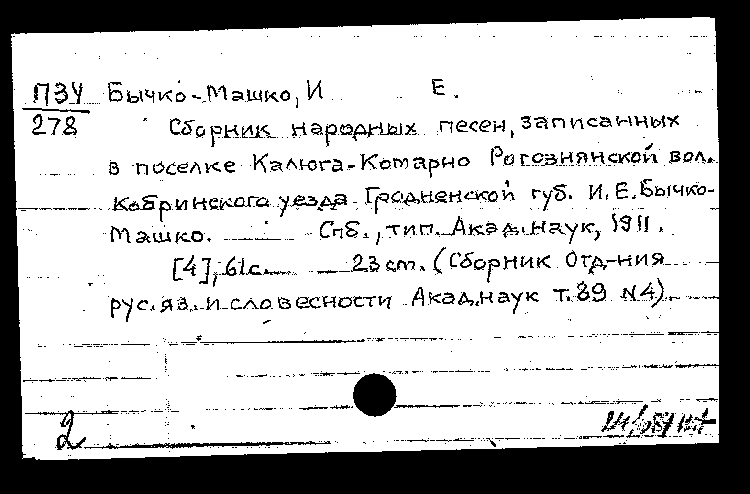 ПЗУ Бычко-Машко, И Е.
278 Сборник народных песен, записанных
в поселке Калюга-Комарно Рогознянской вол.
Кобринского уезда Гродненской губ. И. Е. Бычко-
Машко. Спб., тип. Акад. наук, 1911.
[4], 61с. 23 cm. (Сборник Отд-ния
рус. яз. и словесности Акад. наук т. 89 N4).
2